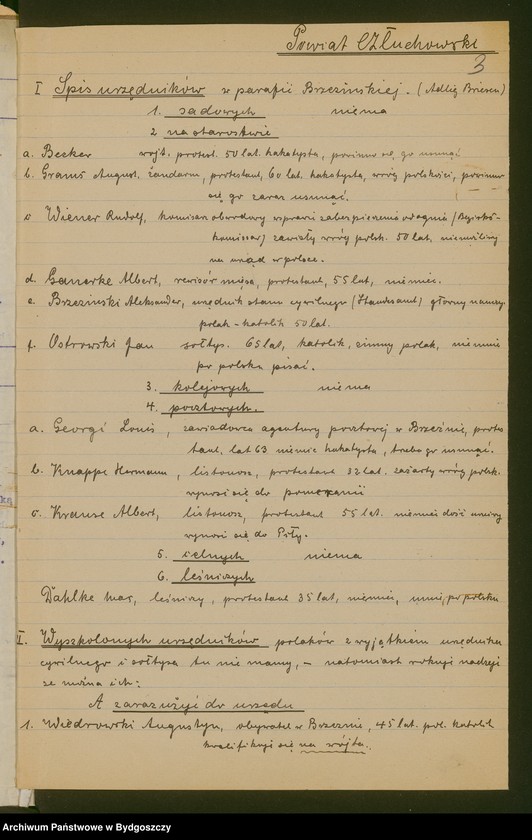 Powiat Człuchowski
3
I Spis urzędników w parafii Brzezińskiej. (Adlig Briesen)
1. sadowych niema
2 na starostwie
a. Becker wójt. protest. 50 lat. hakatysta, powinno się go usunąć
b. Grams August. żandarm, protestant, 60 lat. hakatysta, wróg polskości, powinno
się go zaraz usunąć.
c Wiener Rudolf, komisarz obwodowy w sprawie zabezpieczenia od ognia (Bezirks-
kommissar) zawzięty wróg polsk. 50 lat, niemożliwy
na urząd w polsce.
d. Albert, rewisór mięsa, protestant, 55 lat, niemiec.
e. Brzezinski Aleksander, urzędnik stanu cywilnego (Standesamt) główny naucz.
polak - katolik 50 lat.
f. Ostrowski Jan sołtys. 65 lat, katolik, zimny polak, nie umie
po polsku pisać.
3. kolejowych niema
4. pocztowych.
a. Georgi Louis, zawiadowca agentury pocztowej w Brzeźnie, protes
tant, lat 63 niemiec hakatysta, trzeba go usunąć.
b. Knappe Hermann, listonosz, protestant 32 lat. zażarty wróg polsk.
wynosi się do pomeranii
c. Krause Albert, listonosz, protestant 55 lat. niemiec dość
wynosi się do Piły.
5. celnych niema
6. leśniczych
Dahlke Max, leśniczy, protestant 35 lat, niemiec, umie po polsku
II. Wyszkolonych urzędników polaków z wyjątkiem urzędnika
cywilnego i sołtysa tu nie mamy, – natomiast nadzieji
ze można ich:
A zaraz użyć do urzędu
1. Wiedrowski Augustyn, obywatel w Brzeznie, 45 lat. pol. katolik
kwalifikuje się na wójta.
Archiwum Państwowe w Bydgoszczy